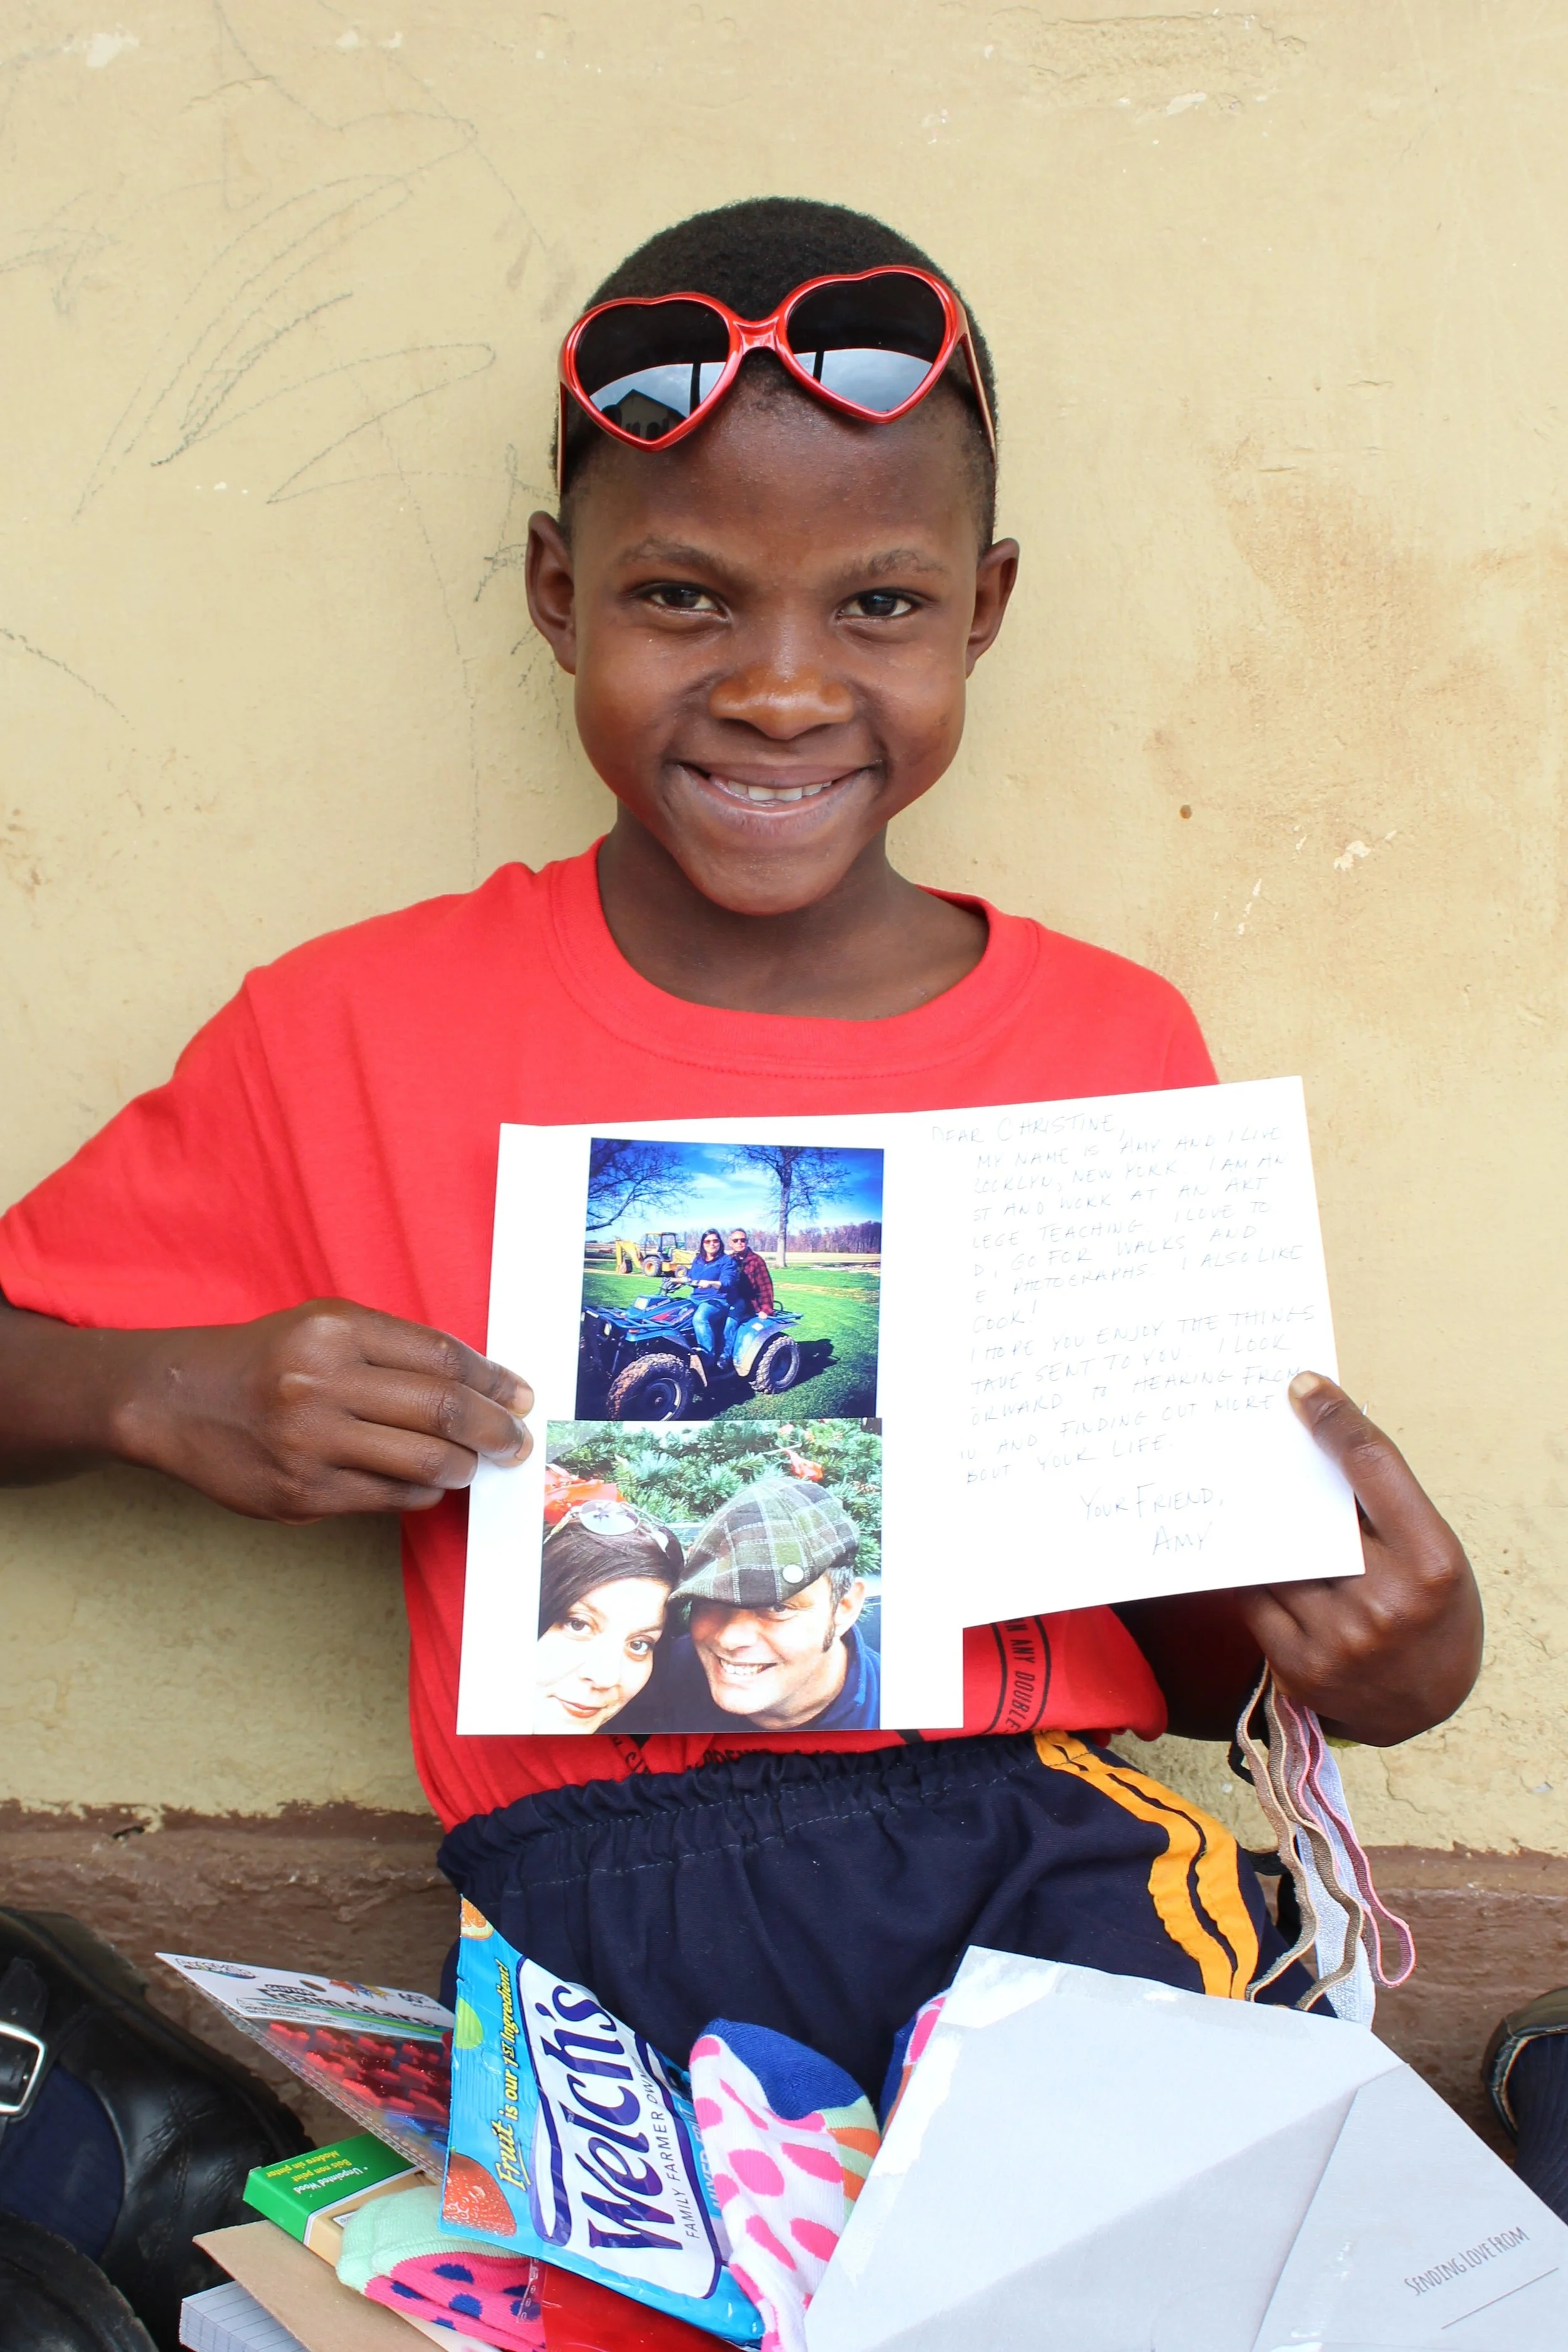 DEAR CHRISTINE,
MY NAME IS AMY AND I LIVE
OOKLYN, NEW YORK. I AM AN
ST AND WORK AT AN ART
LEGE TEACHING. I LOVE TO
D, GO FOR WALKS AND
E PHOTOGRAPHS. I ALSO LIKE
COOK!
I HOPE YOU ENJOY THE THINGS
HAVE SENT TO YOU. I LOOK
ORWARD TO HEARING FROM
U AND FINDING OUT MORE
BOUT YOUR LIFE.
YOUR FRIEND,
AMY
N ANY DOUBLE
Fruit is our 1st Ingredient!
Welch's
FAMILY FARMER OWN
MIXED FRUIT
Foam Stars
Unpainted Wood
SENDING LOVE FROM